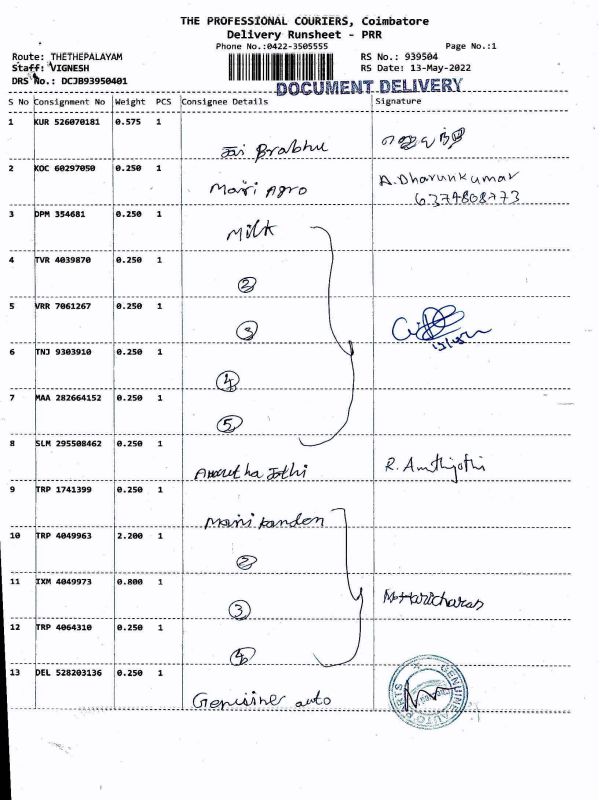 THE PROFESSIONAL COURIERS, Coimbatore
Delivery Runsheet - PRR
Phone No.:0422-3505555 Page No.:1
Route: THETHEPALAYAM RS No.: 939504
Staff: VIGNESH RS Date: 13-May-2022
DRS No.: DCJB93950401
DOCUMENT DELIVERY
S No Consignment No Weight PCS Consignee Details Signature
1 KUR 526070181 0.575 1
Jai Brabhu
2 KOC 60297050 0.250 1 A.Dharunkumar
Mari Agro 6374808773
3 DPM 354681 0.250 1
Milk
4 TVR 4039870 0.250 1
2
5 VRR 7061267 0.250 1
3
6 TNJ 9303910 0.250 1
4
7 MAA 282664152 0.250 1
5
8 SLM 295508462 0.250 1
Amrutha Jothi R. Amthijothi
9 TRP 1741399 0.250 1
Manikandan
10 TRP 4049963 2.200 1
2
11 IXM 4049973 0.800 1
3 M.Haricharan
12 TRP 4064310 0.250 1
4
13 DEL 528203136 0.250 1
Genuine auto
GENUINE AUTO PARTS